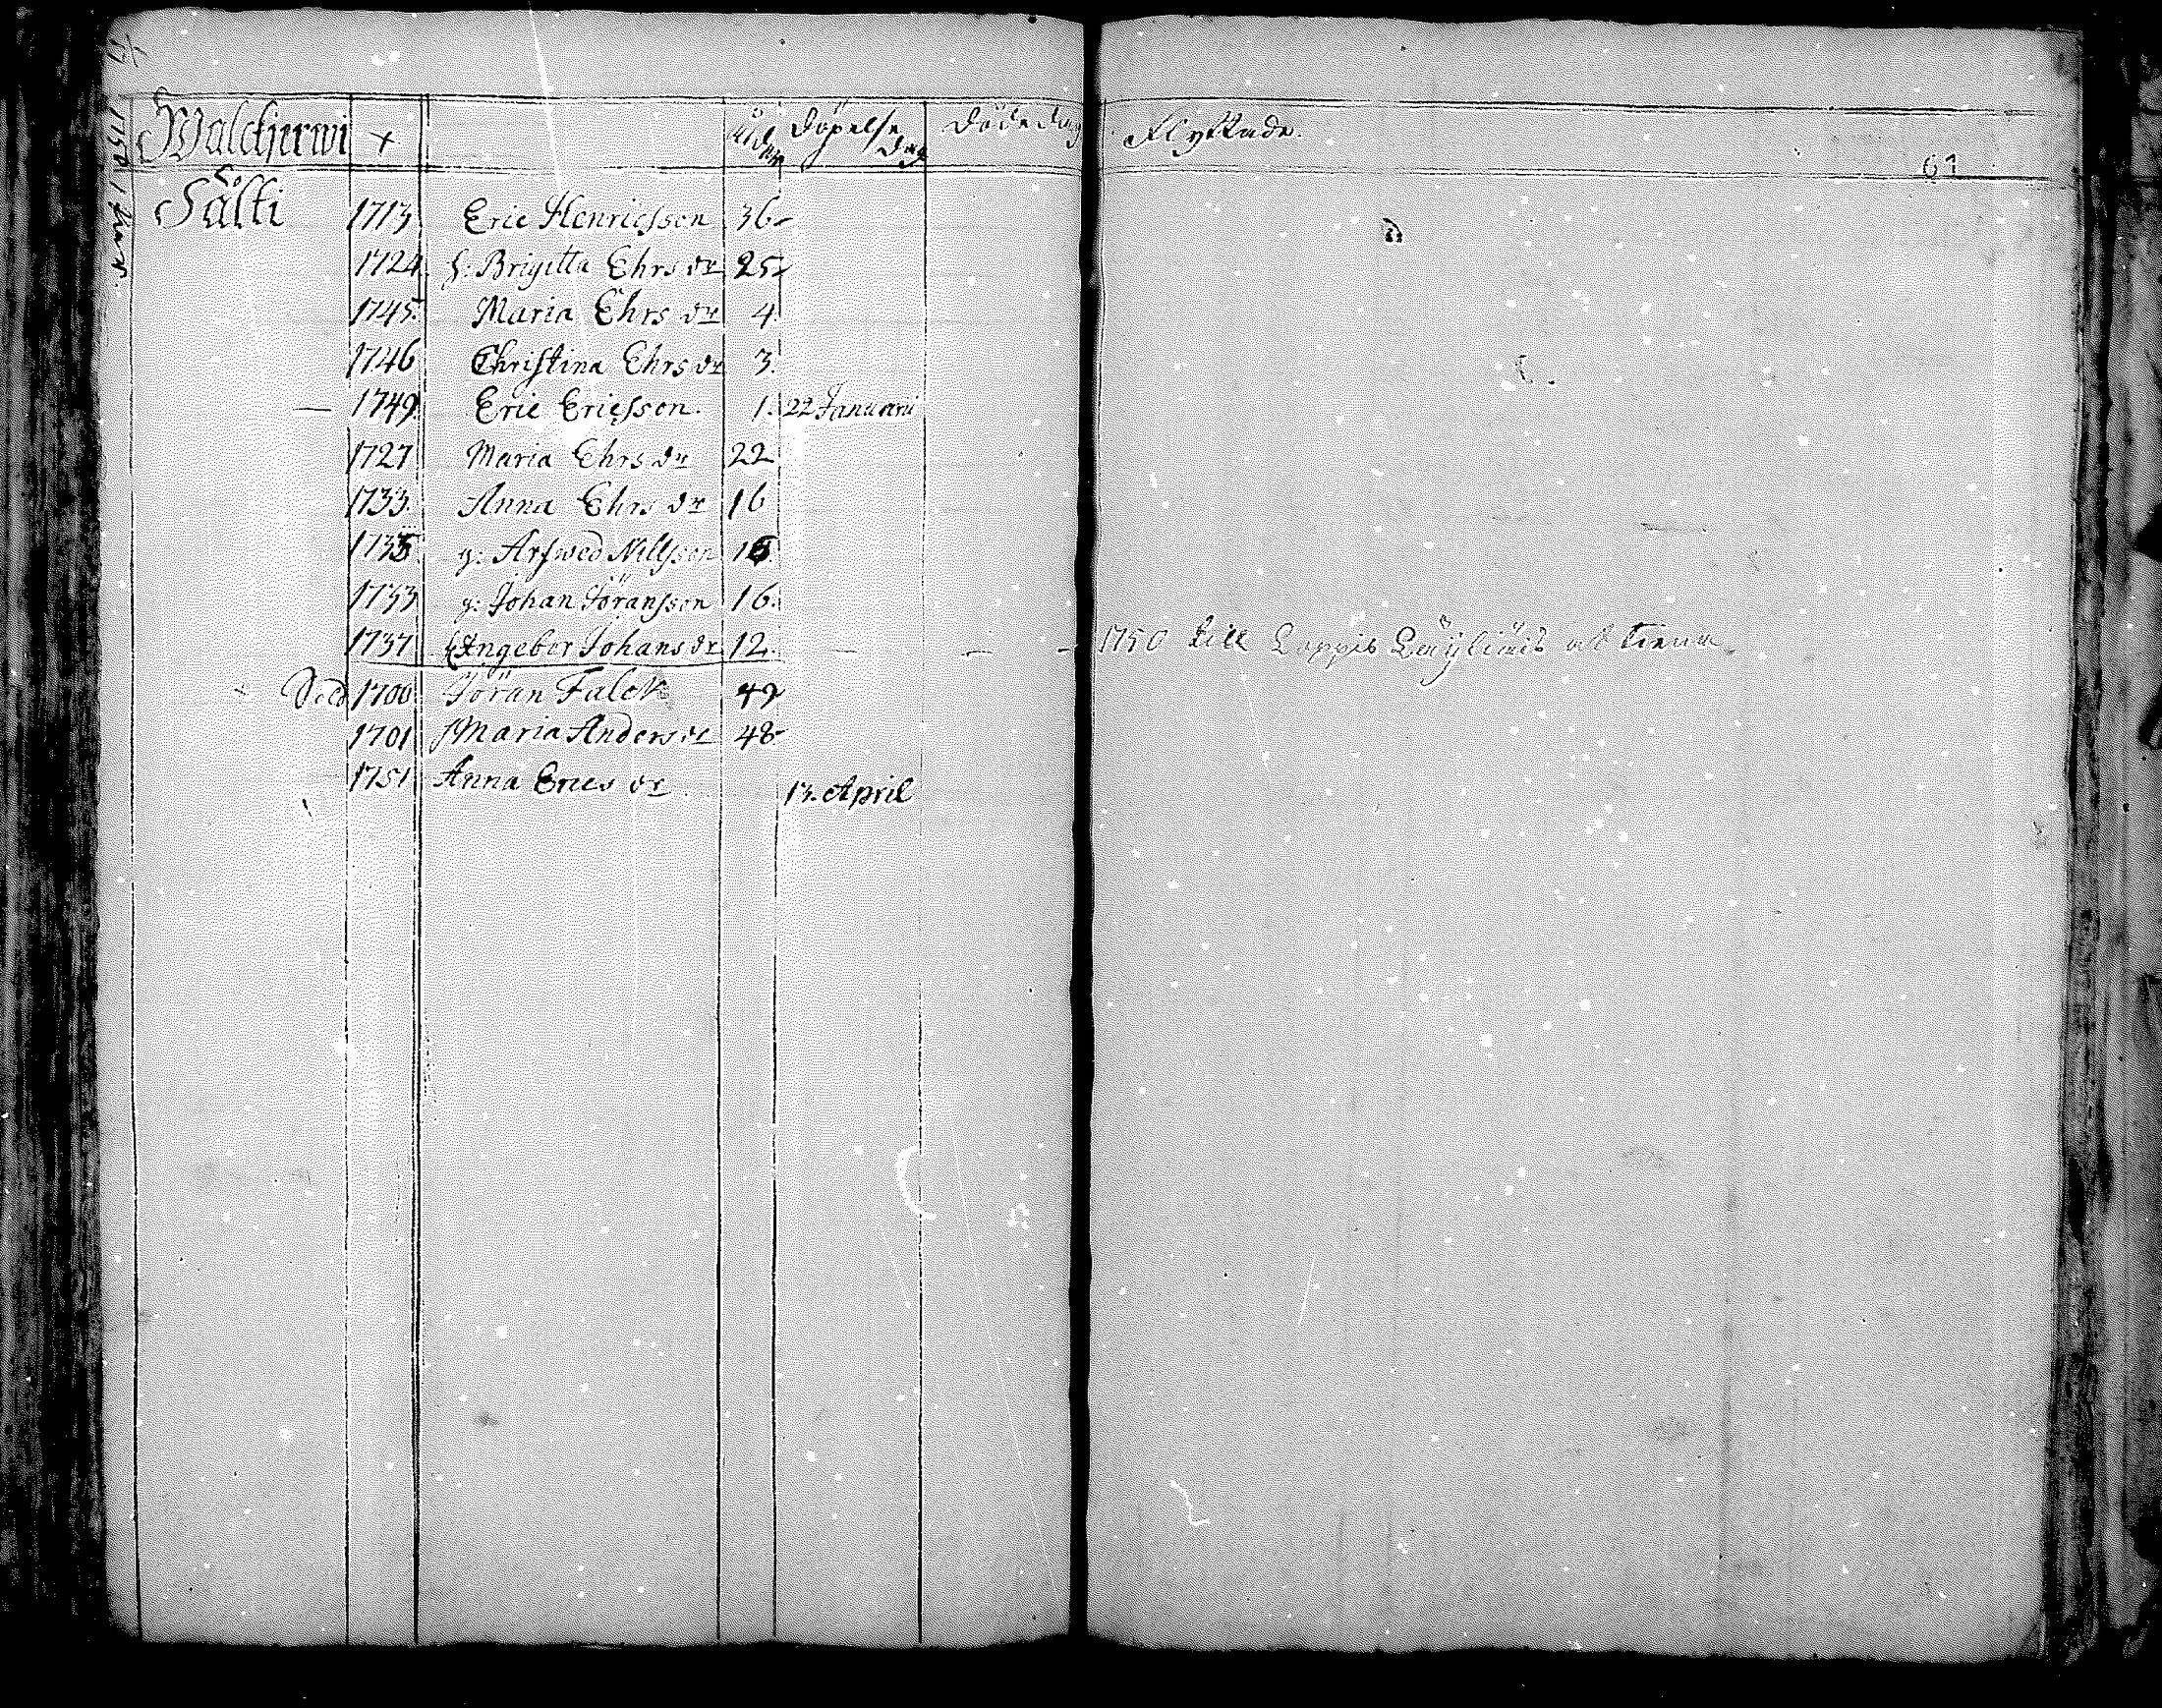 Walckjerwi + Ålder Döpelse dag Dödedag Flyttade.
61
Sålti 1713 Eric Henricsson 36
1724 h: Brigitta Ehrs dr 25
1745. Maria Ehrs dr 4.
1746 Christina Ehrs dr 3.
— 1749. Eric Ericsson. 1. 22 Januarii
1727 Maria Ehrs dr 22
1733. Anna Ehrs dr 16
1735. g: Arfwed Nillsson 15.
1733 g: Johan Jöransson 16.
1737 Ingebor Johans dr 12. — — — 1750 till Loppis at tiena
Sold 1700 Jöran Falck 49
1701 Maria Anders dr 48
1751 Anna Erics dr 13. April